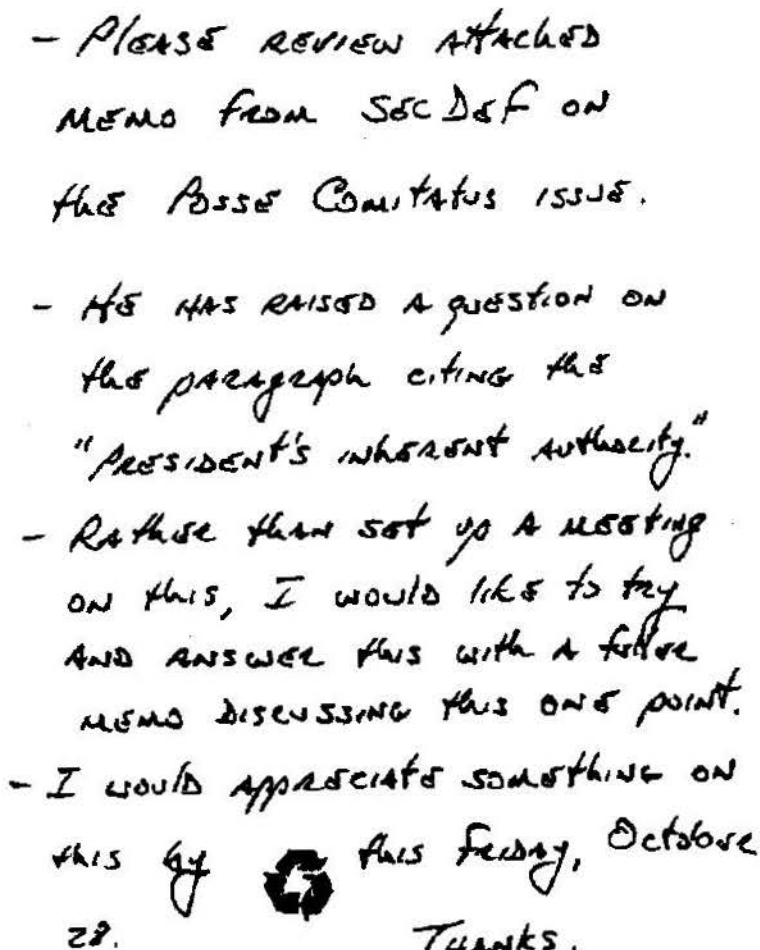 - Please review attached
memo from SecDef on
the Posse Comitatus issue.
- He has raised a question on
the paragraph citing the
"President's inherent authority."
- Rather than set up a meeting
on this, I would like to try
and answer this with a fuller
memo discussing this one point.
- I would appreciate something on
this by this Friday, October
28. Thanks.